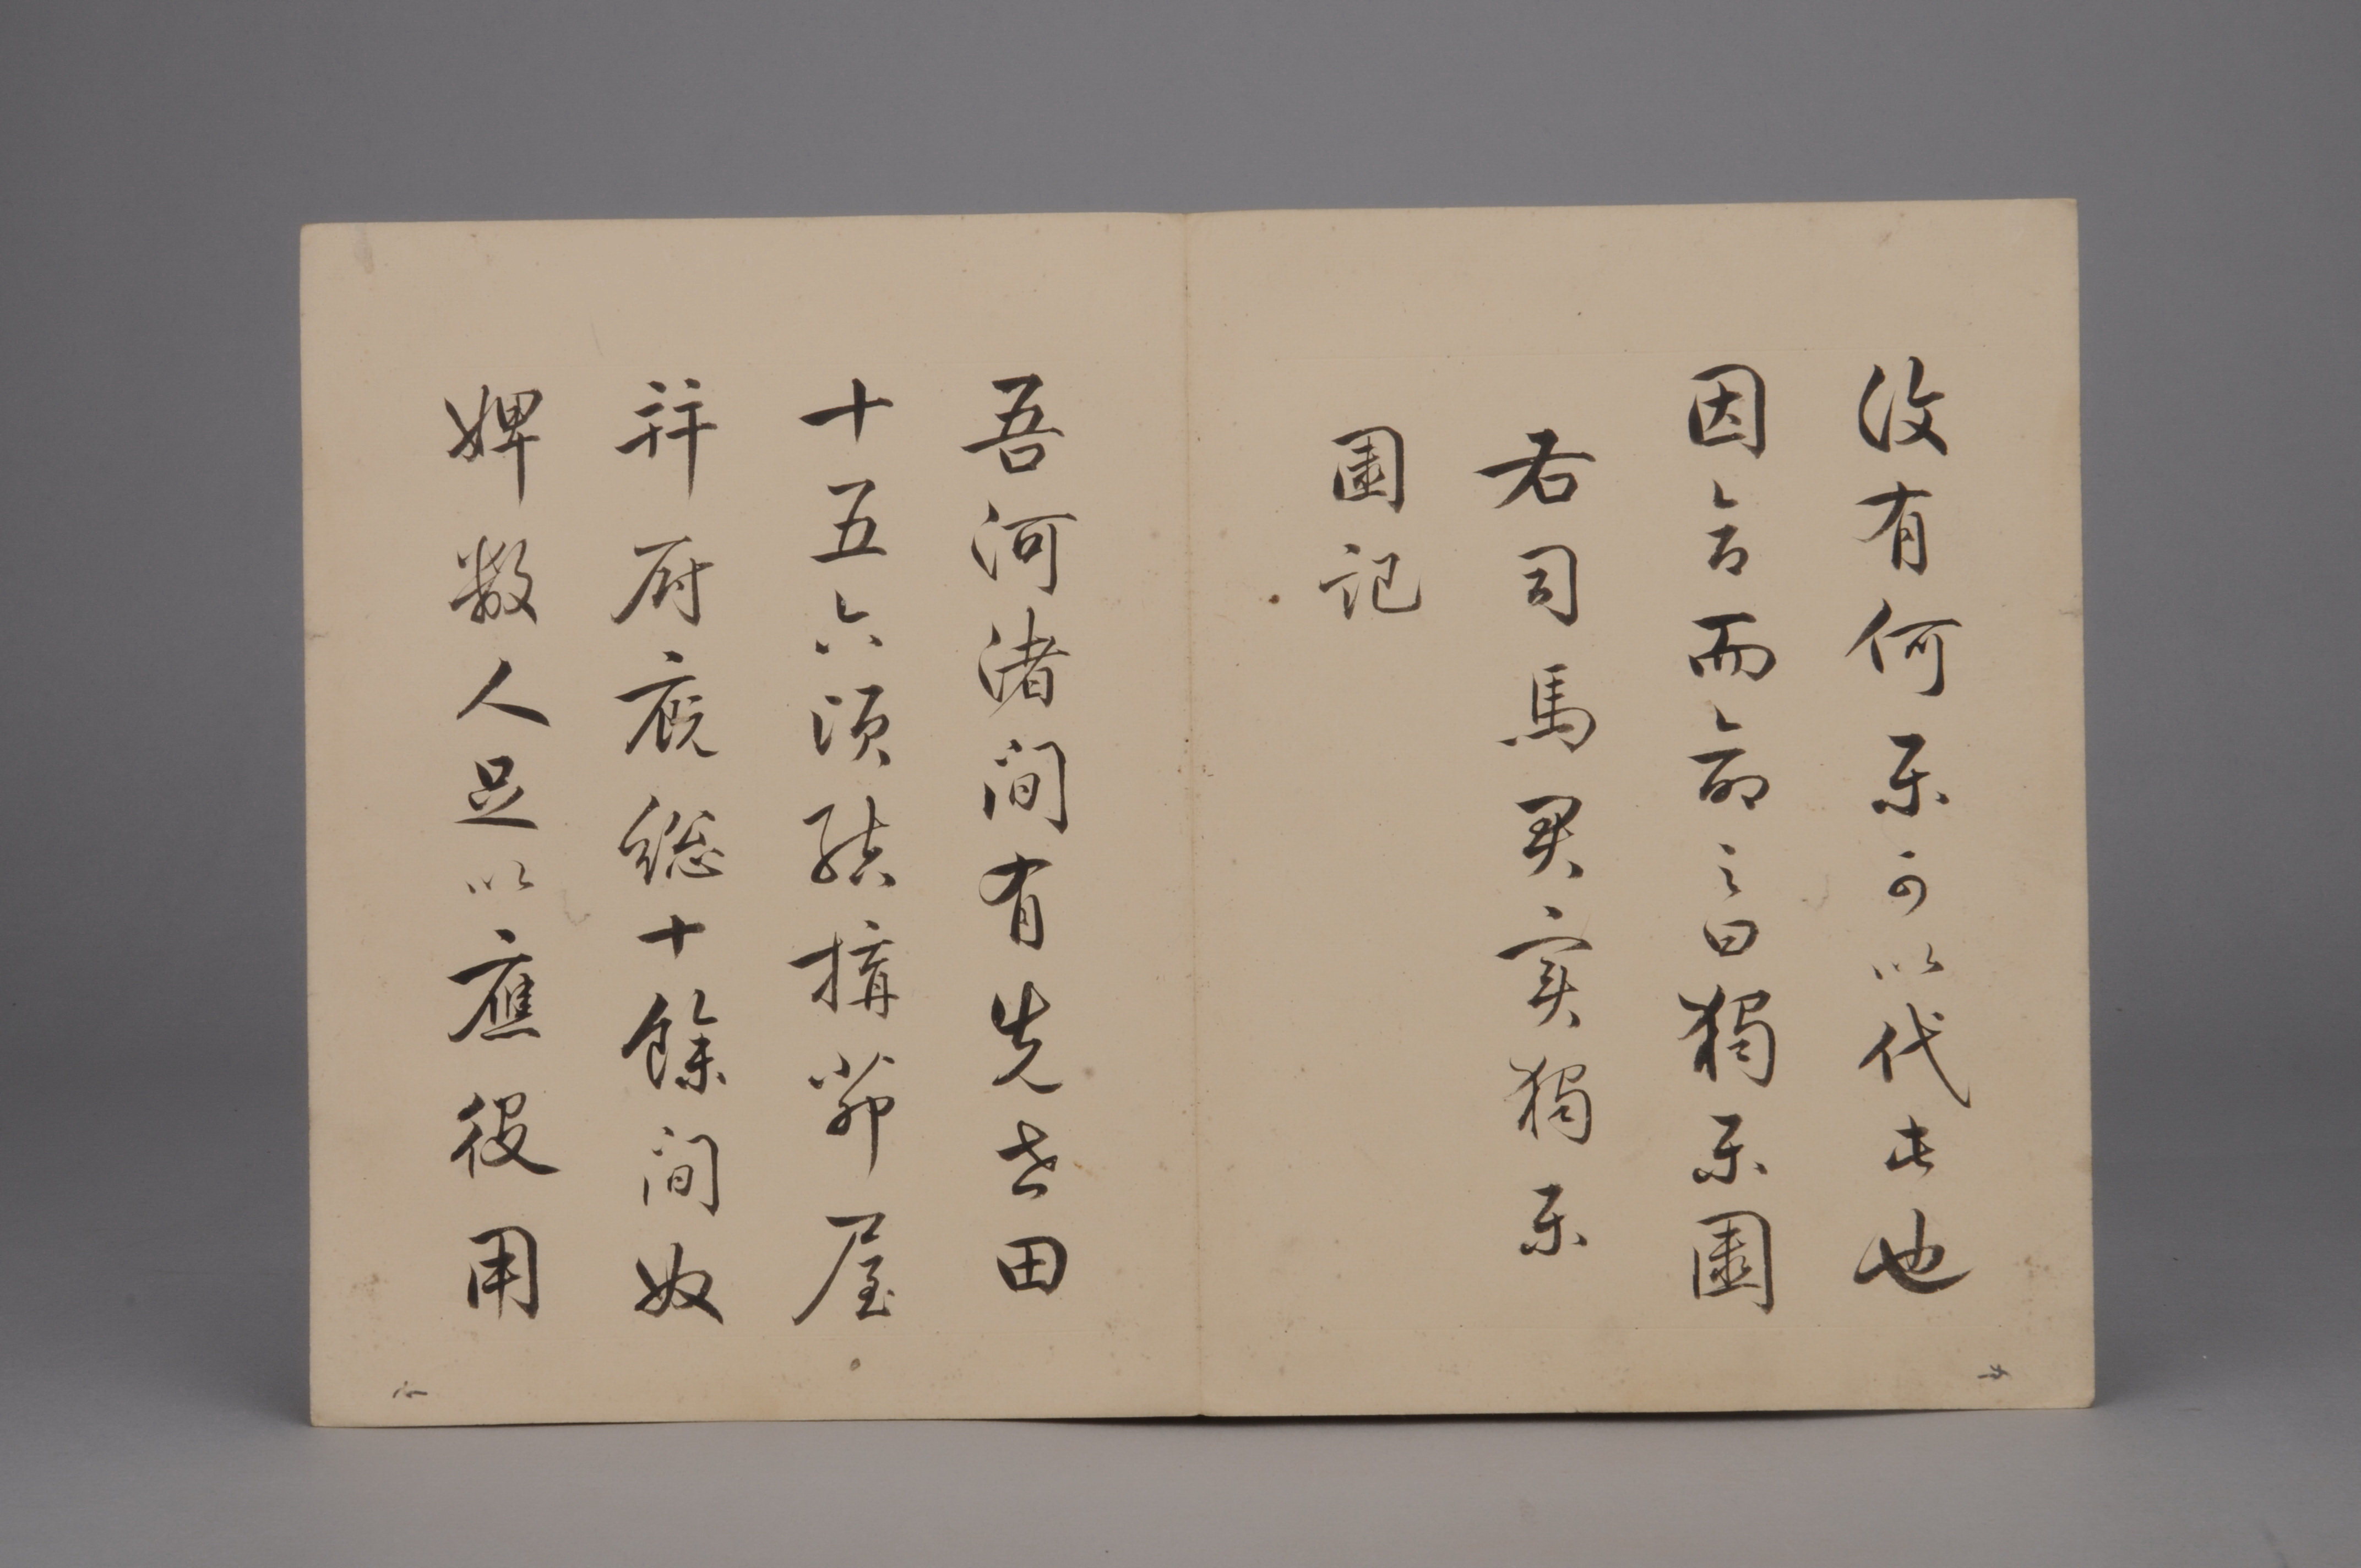 復有何樂可以代此也
因合而命之曰獨樂園
右司馬君實獨樂
園記
吾河渚間有先世田
十五六頃結搆茆屋
并厨廐總十餘間奴
婢數人足以應役用